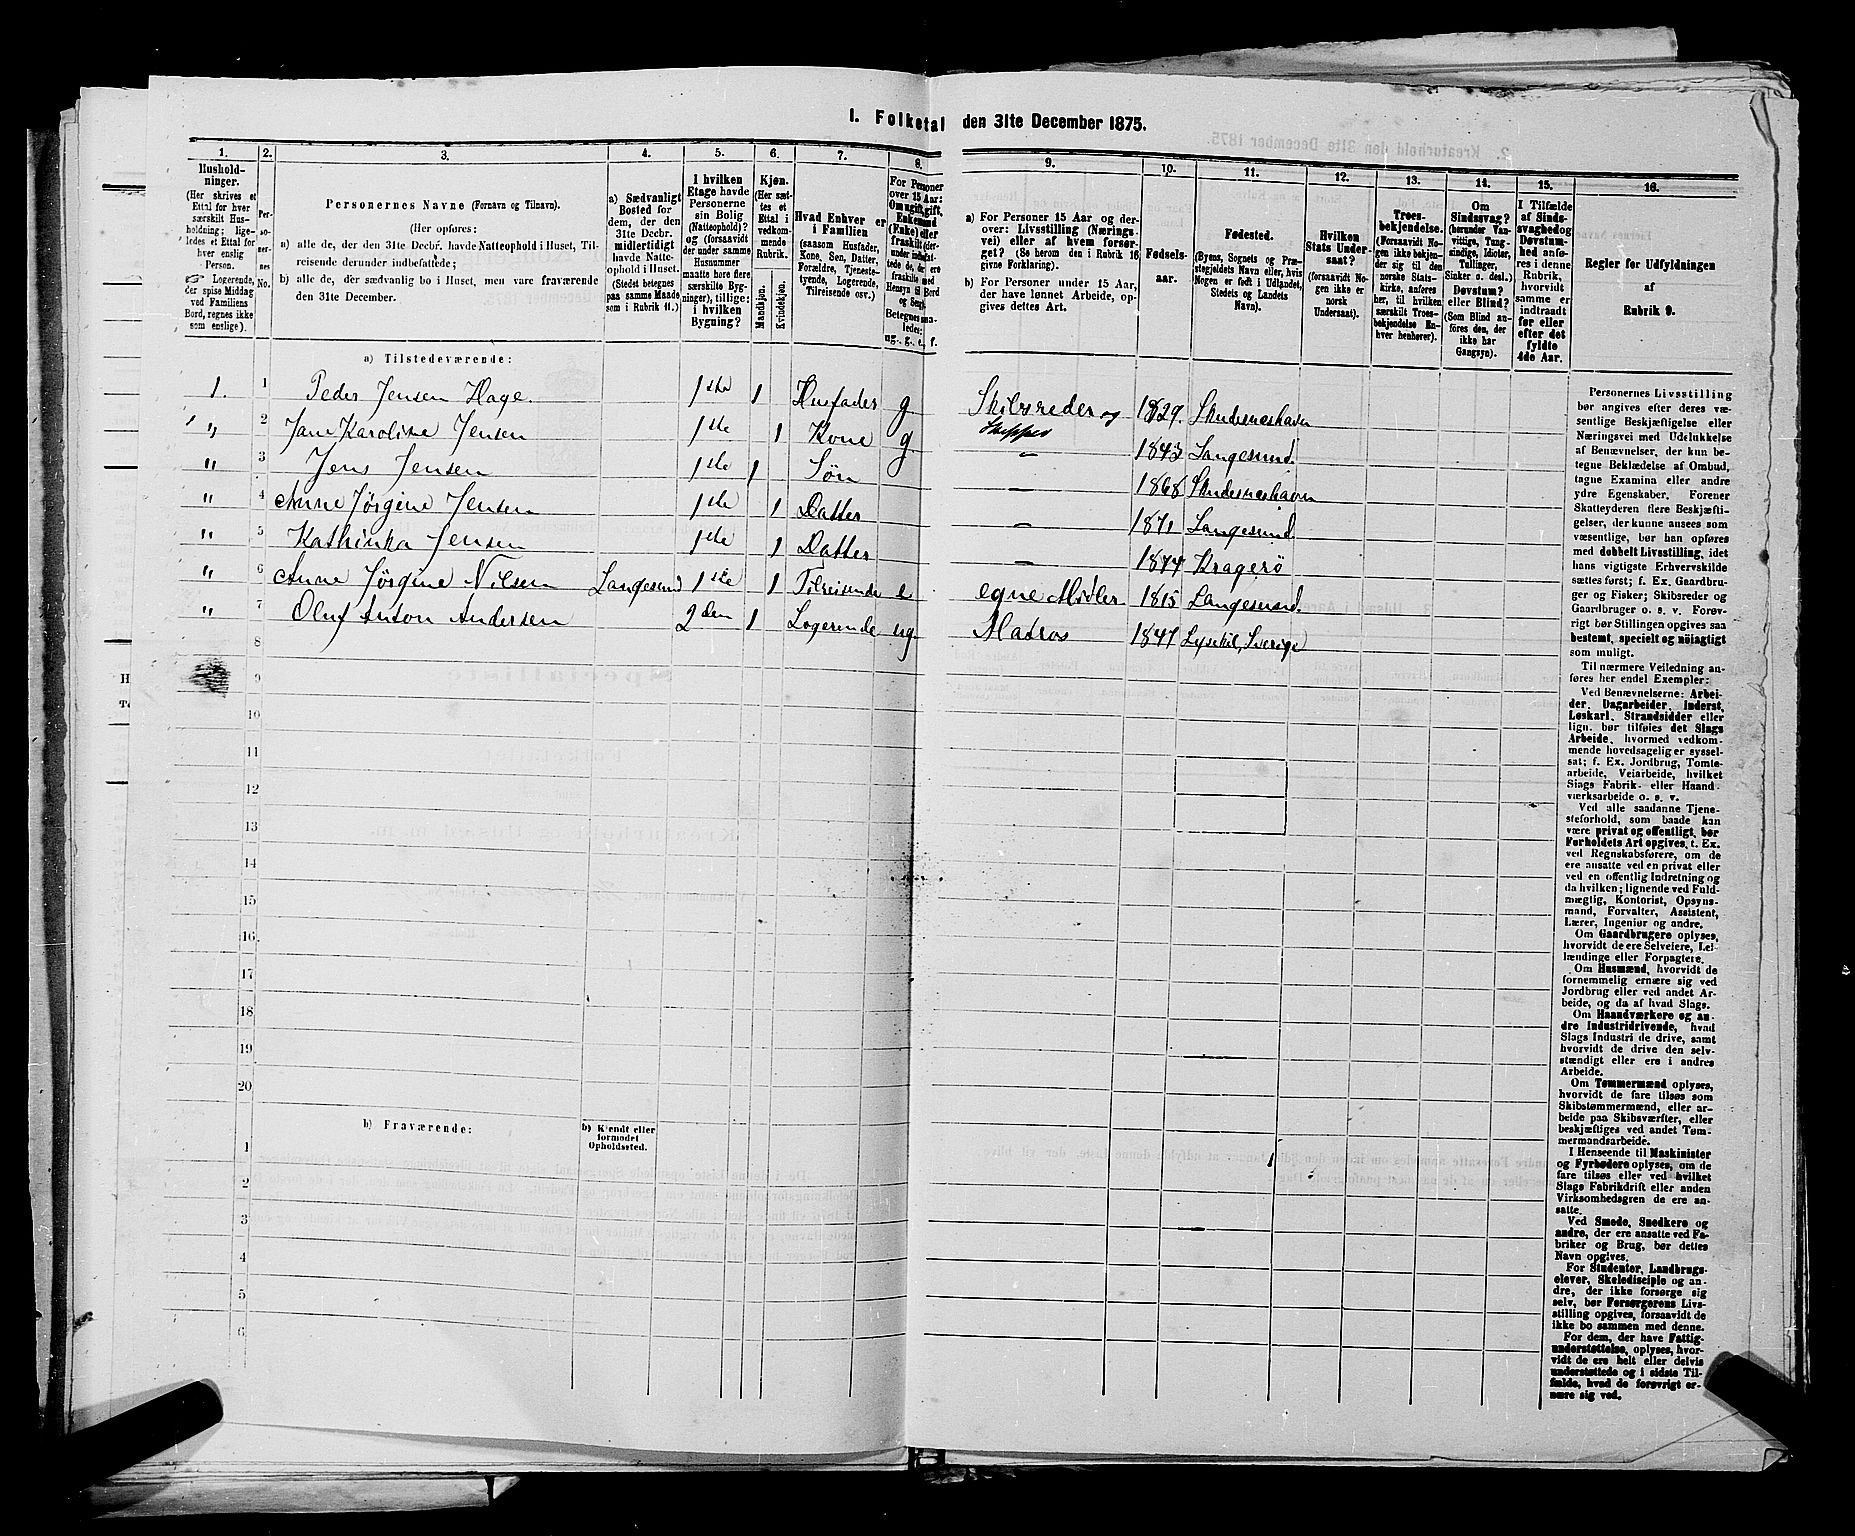 I. Folketal den 31te December 1875.
1. 2. 3. 4. 5. 6. 7. 8. 9. 10. 11. 12. 13. 14. 15. 16.
Husholdninger.
(Her skrives et
Ettal for hver
særskilt Hus-
holdning; lige-
ledes et Ettal for
hver enslig
Person.
Logerende,
der spise Middag
ved Familiens
Bord, regnes ikke
som enslige).
Per-
so-
ner-
nes
No.
Personernes Navne (Fornavn og Tilnavn).
(Her opføres:
a) alle de, der den 31te Decbr. havde Natteophold i Huset, Til-
reisende derunder indbefattede;
b) alle de, der sædvanlig bo i Huset, men vare fraværende
den 31te December.
a) Sædvanligt
Bosted for
dem, der den
31te Decbr.
midlertidigt
havde Natte-
ophold i Huset.
(Stedet betegnes
paa samme Maade
som i Rubrik 11.)
I hvilken
Etage havde
Personerne
sin Bolig
(Natteophold)?
og (forsaavidt
der under samme
Husnummer
maatte høre flere
særskilte Byg-
ninger), tillige:
i hvilken
Bygning?
Kjøn.
(Her sæt-
tes et
Ettal i
vedkom-
mende
Rubrik.
Mandkjøn.
Kvindekjøn.
Hvad Enhver er
i Familien
(saasom Husfader,
Kone, Søn, Datter,
Forældre, Tjeneste-
tyende, Logerende,
Tilreisende osv.)
For Personer
over 15 Aar:
Om ugift, gift,
Enkemand
(Enke) eller
fraskilt (der-
under indbefat-
tede de, der ere
fraskilte med
Hensyn til Bord
og Seng).
Betegnes saa-
ledes:
ug., g., e., f.
a) For Personer 15 Aar og der-
over: Livsstilling (Nærings-
vei) eller af hvem forsør-
get? (Se herom den i Rubrik 16
givne Forklaring).
b) For Personer under 15 Aar,
der have lønnet Arbeide, op-
gives dettes Art.
Fødsels-
aar.
Fødested.
(Byens, Sognets og Præ-
stegjeldets Navn eller, hvis
Nogen er født i Udlandet,
Stedets og Landets
Navn).
Hvilken
Stats Under-
saat?
(forsaavidt No-
gen ikke er
norsk
Undersaat).
Troes-
bekjendelse.
(Forsaavidt No-
gen ikke bekjen-
der sig til den
norske Stats-
kirke, anføres
her, til hvilken
særskilt Troes-
bekjendelse En-
hver henhører).
Om
Sindssvag?
(herunder Van-
vittige, Tung-
sindige, Idioter,
Tullinger,
Sinker o. desl.)
Døvstum?
eller Blind?
(Som Blind an-
føres den, der
ikke har
Gangsyn).
I Tilfælde
af Sinds-
svaghed og
Døvstum-
hed anfø-
res i denne
Rubrik,
hvorvidt
samme er
indtraadt
før eller
efter det
fyldte
4de Aar.
Regler for Udfyldningen
af
Rubrik 9.
a) Tilstedeværende:
1. 1 Peder Jensen Hage. 1ste 1 Husfader g Skibsreder og Skipper 1829. Skudesneshavn
" 2 Jane Karoline Jensen 1ste 1 Kone g — 1843 Langesund.
" 3 Jens Jensen 1ste 1 Søn — 1868 Skudesneshavn
" 4 Anne Jørgine Jensen 1ste 1 Datter — 1871 Langesund
" 5 Kathinka Jensen 1ste 1 Datter 1874 Kragerö
" 6 Anne Jørgine Nilsen Langesund 1ste 1 Tilreisende e egne Midler 1815 Langesund.
" 7 Oluf Anton Andersen 2den 1 Logerende ug. Matros 1847 Lysekil, Sverige
8
9
10
11
12
13
14
15
16
17
18
19
20
b) Fraværende:
b) Kjendt eller
formodet
Opholdssted.
1
2
3
4
5
6
Personernes Livsstilling
bør angives efter deres væ-
sentlige Beskjæftigelse eller
Næringsvei med Udelukkelse
af Benævnelser, der kun be-
tegne Beklædelse af Ombud,
tagne Examina eller andre
ydre Egenskaber. Forener
Skatteyderen flere Beskjæfti-
gelser, der kunne ansees som
væsentlige, bør han opføres
med dobbelt Livsstilling, idet
hans vigtigste Erhvervskilde
sættes først; f. Ex. Gaardbru-
ger og Fisker; Skibsreder og
Gaardbruger o. s. v. Forøv-
rigt bør Stillingen opgives saa
bestemt, specielt og nøiagtigt
som muligt.
Til nærmere Veiledning an-
føres her endel Exempler:
Ved Benævnelserne: Arbei-
der, Dagarbeider, Inderst,
Løskarl, Strandsidder eller
lign. bør tilføies det Slags
Arbeide, hvormed vedkom-
mende hovedsagelig er syssel-
sat; f. Ex. Jordbrug, Tomte-
arbeide, Veiarbeide, hvilket
Slags Fabrik- eller Haand-
værksarbeide o. s. v.
Ved alle saadanne Tjene-
steforhold, som baade kan
være privat og offentligt, bør
Forholdets Art opgives, t. Ex.
ved Regnskabsførere, om de
ere ansatte ved en privat eller
ved en offentlig Indretning og
da hvilken; lignende ved Fuld-
mægtig, Kontorist, Opsyns-
mand, Forvalter, Assistent,
Lærer, Ingeniør og andre.
Om Gaardbrugere oplyses,
hvorvidt de ere Selveiere, Lei-
lændinge eller Forpagtere.
Om Husmænd, hvorvidt de
fornemmelig ernære sig ved
Jordbrug eller ved andet Ar-
beide, og da af hvad Slags.
Om Haandværkere og an-
dre Industridrivende, hvad
Slags Industri de drive, samt
hvorvidt de drive den selv-
stændigt eller ere i andres
Arbeide.
Om Tømmermænd oplyses,
hvorvidt de fare tilsøs som
Skibstømmermænd, eller ar-
beide paa Skibsværfter, eller
beskjæftiges ved andet Tøm-
mermandsarbeide.
I Henseende til Maskinister
og Fyrbødere oplyses, om de
fare tilsøs eller ved hvilket
Slags Fabrikdrift eller anden
Virksomhedsgren de ere an-
satte.
Ved Smede, Snedkere og
andre, der ere ansatte ved Fa-
briker og Brug, bør dettes
Navn opgives.
For Studenter, Landbrugs-
elever, Skoledisciple og an-
dre, der ikke forsørge sig
selv, bør Forsørgerens Livs-
stilling opgives, forsaavidt de
ikke bo sammen med denne.
For dem, der have Fattig-
understøttelse, oplyses, hvor-
vidt de ere helt eller delvis
understøttede og i sidste Til-
fælde, hvad de forøvrigt er-
nære sig ved.